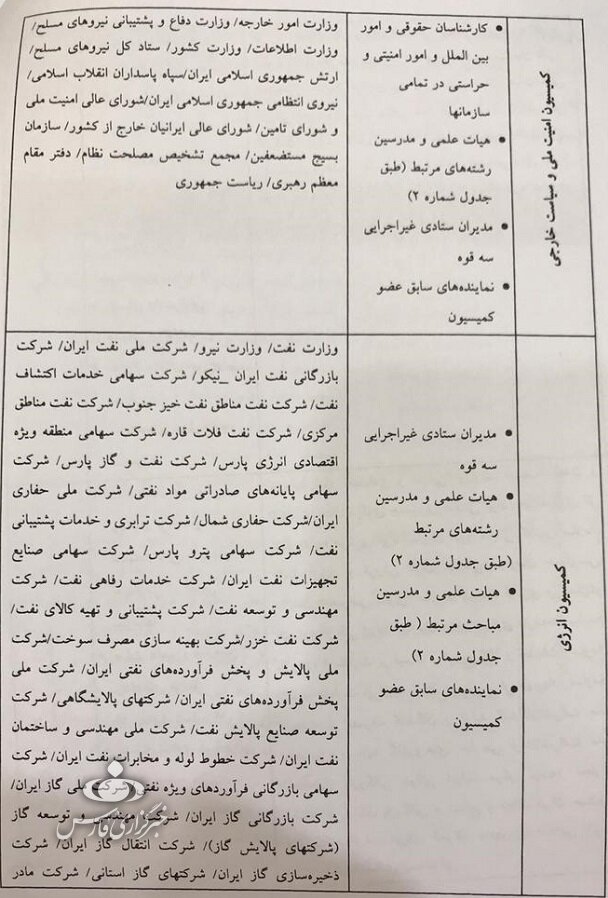 کمیسیون امنیت ملی و سیاست خارجی
• کارشناسان حقوقی و امور
بین الملل و امور امنیتی و
حراستی در تمامی
سازمانها
• هیات علمی و مدرسین
رشته‌های مرتبط (طبق
جدول شماره ۲)
• مدیران ستادی غیراجرایی
سه قوه
• نماینده‌های سابق عضو
کمیسیون
وزارت امور خارجه/ وزارت دفاع و پشتیبانی نیروهای مسلح/
وزارت اطلاعات/ وزارت کشور/ ستاد کل نیروهای مسلح/
ارتش جمهوری اسلامی ایران/سپاه پاسداران انقلاب اسلامی/
نیروی انتظامی جمهوری اسلامی ایران/شورای عالی امنیت ملی
و شورای تامین/ شورای عالی ایرانیان خارج از کشور/ سازمان
بسیج مستضعفین/ مجمع تشخیص مصلحت نظام/ دفتر مقام
معظم رهبری/ ریاست جمهوری
کمیسیون انرژی
• مدیران ستادی غیراجرایی
سه قوه
• هیات علمی و مدرسین
رشته‌های مرتبط
(طبق جدول شماره ۲)
• هیات علمی و مدرسین
مباحث مرتبط ( طبق
جدول شماره ۲)
• نماینده‌های سابق عضو
کمیسیون
وزارت نفت/ وزارت نیرو/ شرکت ملی نفت ایران/ شرکت
بازرگانی نفت ایران _نیکو/ شرکت سهامی خدمات اکتشاف
نفت/ شرکت نفت مناطق نفت خیز جنوب/ شرکت نفت مناطق
مرکزی/ شرکت نفت فلات قاره/ شرکت سهامی منطقه ویژه
اقتصادی انرژی پارس/ شرکت نفت و گاز پارس/ شرکت
سهامی پایانه‌های صادراتی مواد نفتی/ شرکت ملی حفاری
ایران/شرکت حفاری شمال/ شرکت ترابری و خدمات پشتیبانی
نفت/ شرکت سهامی پترو پارس/ شرکت سهامی صنایع
تجهیزات نفت ایران/ شرکت خدمات رفاهی نفت/ شرکت
مهندسی و توسعه نفت/ شرکت پشتیبانی و تهیه کالای نفت/
شرکت نفت خزر/شرکت بهینه سازی مصرف سوخت/شرکت
ملی پالایش و پخش فرآورده‌های نفتی ایران/ شرکت ملی
پخش فرآورده‌های نفتی ایران/ شرکتهای پالایشگاهی/ شرکت
توسعه صنایع پالایش نفت/ شرکت ملی مهندسی و ساختمان
نفت ایران/ شرکت خطوط لوله و مخابرات نفت ایران/ شرکت
سهامی بازرگانی فرآوردهای ویژه نفتی/ شرکت ملی گاز ایران/
شرکت بازرگانی گاز ایران/ شرکت مهندسی و توسعه گاز
(شرکتهای پالایش گاز)/ شرکت انتقال گاز ایران/ شرکت
ذخیره‌سازی گاز ایران/ شرکتهای گاز استانی/ شرکت مادر
خبرگزاری فارس